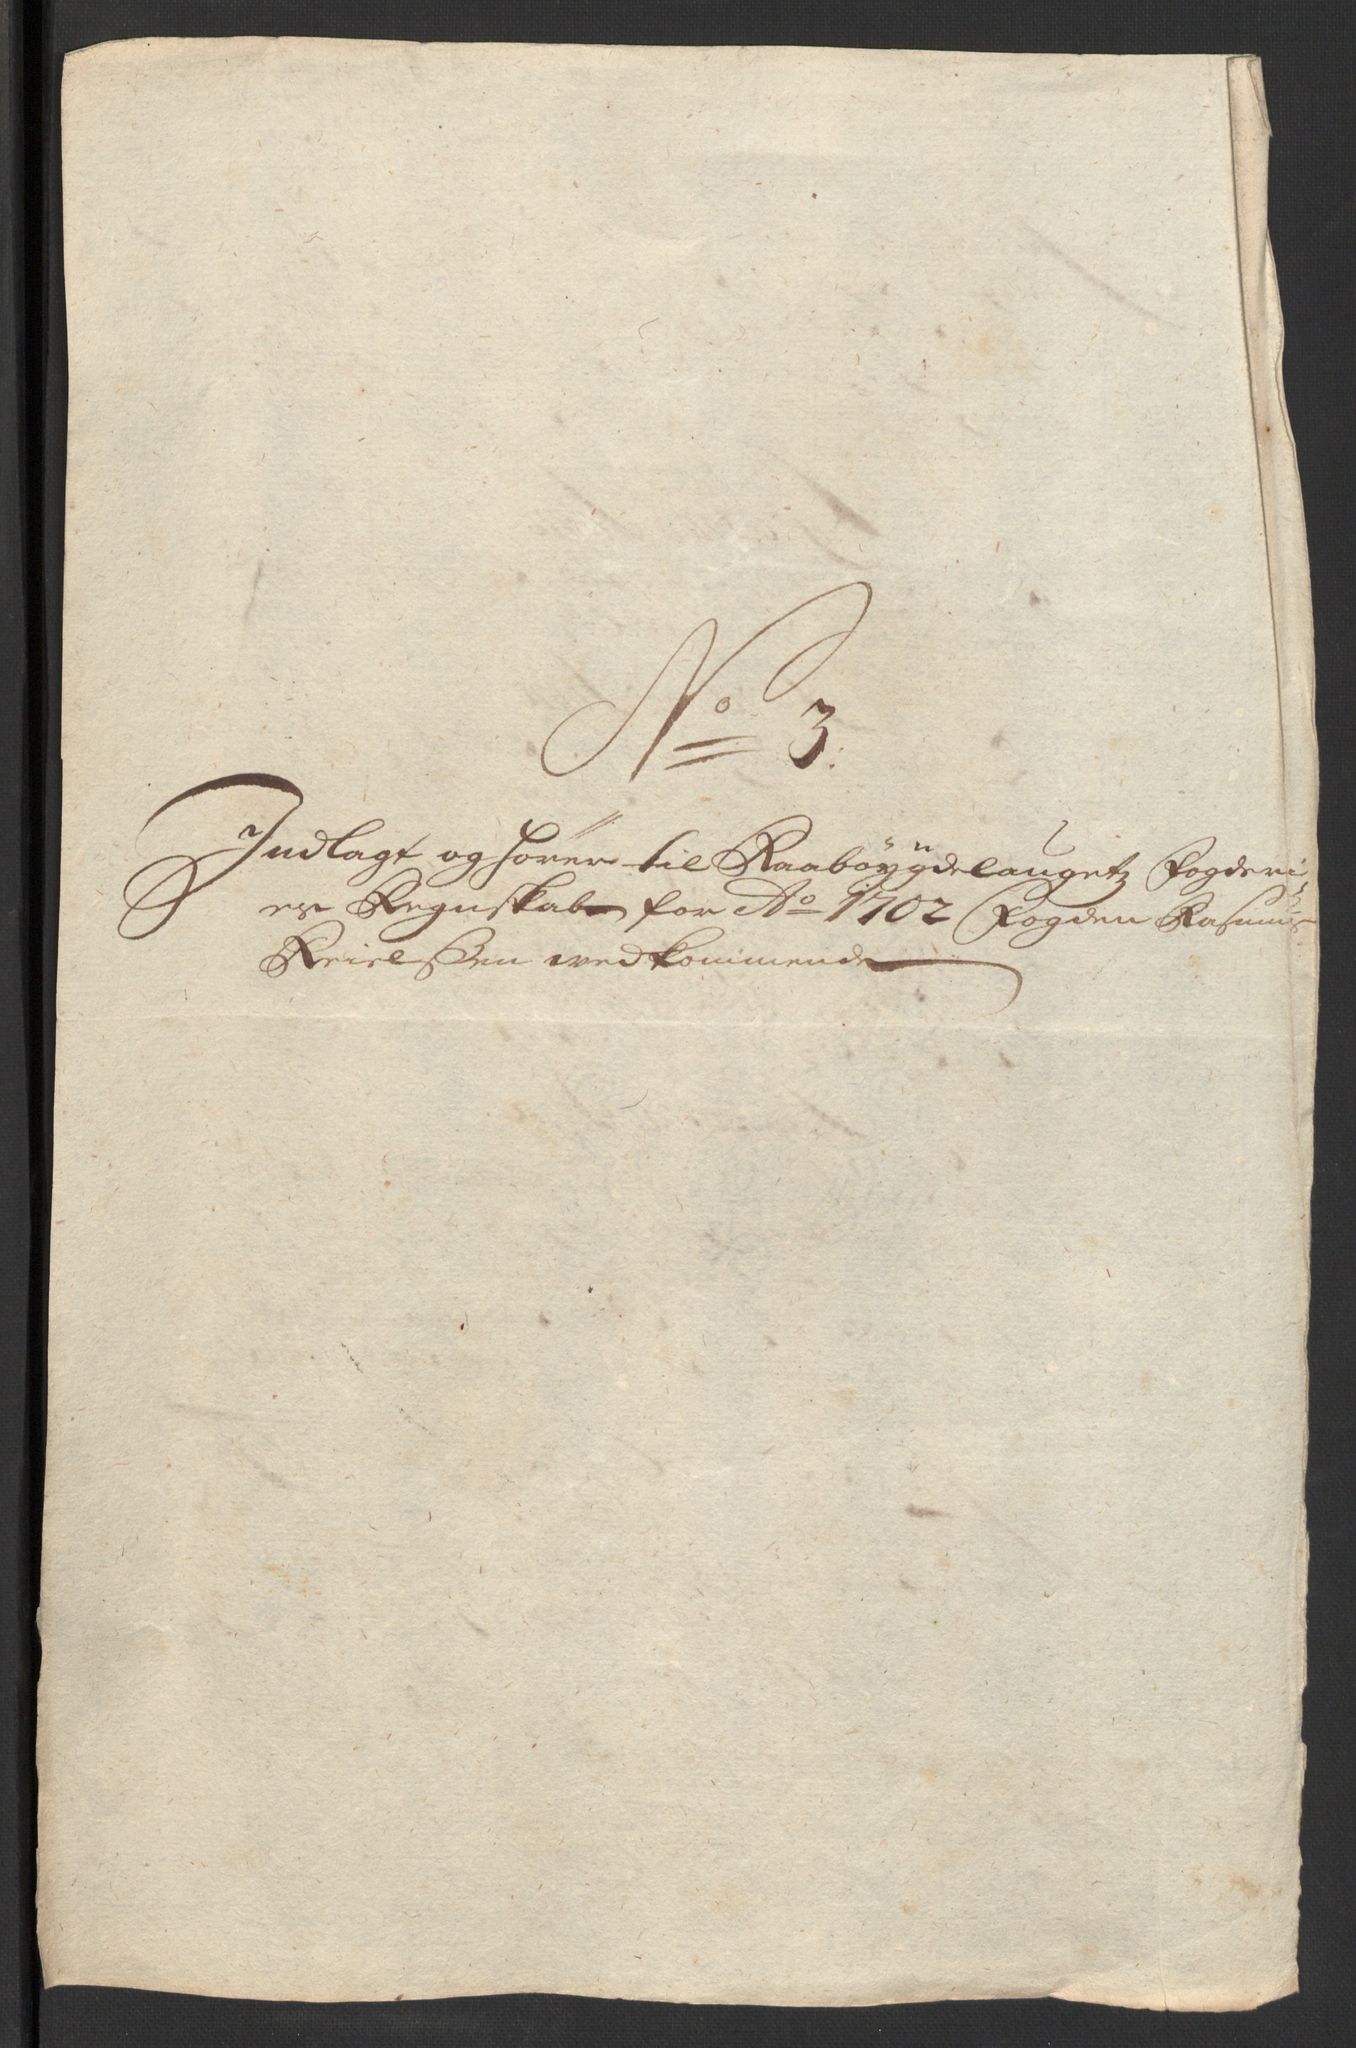 No 3.
Indlagt og hører til Raabøÿgdelaugetz Fogderi-
es Regnskab for Ao 1702 Fogden Rasmus
Reielssen vedkommende